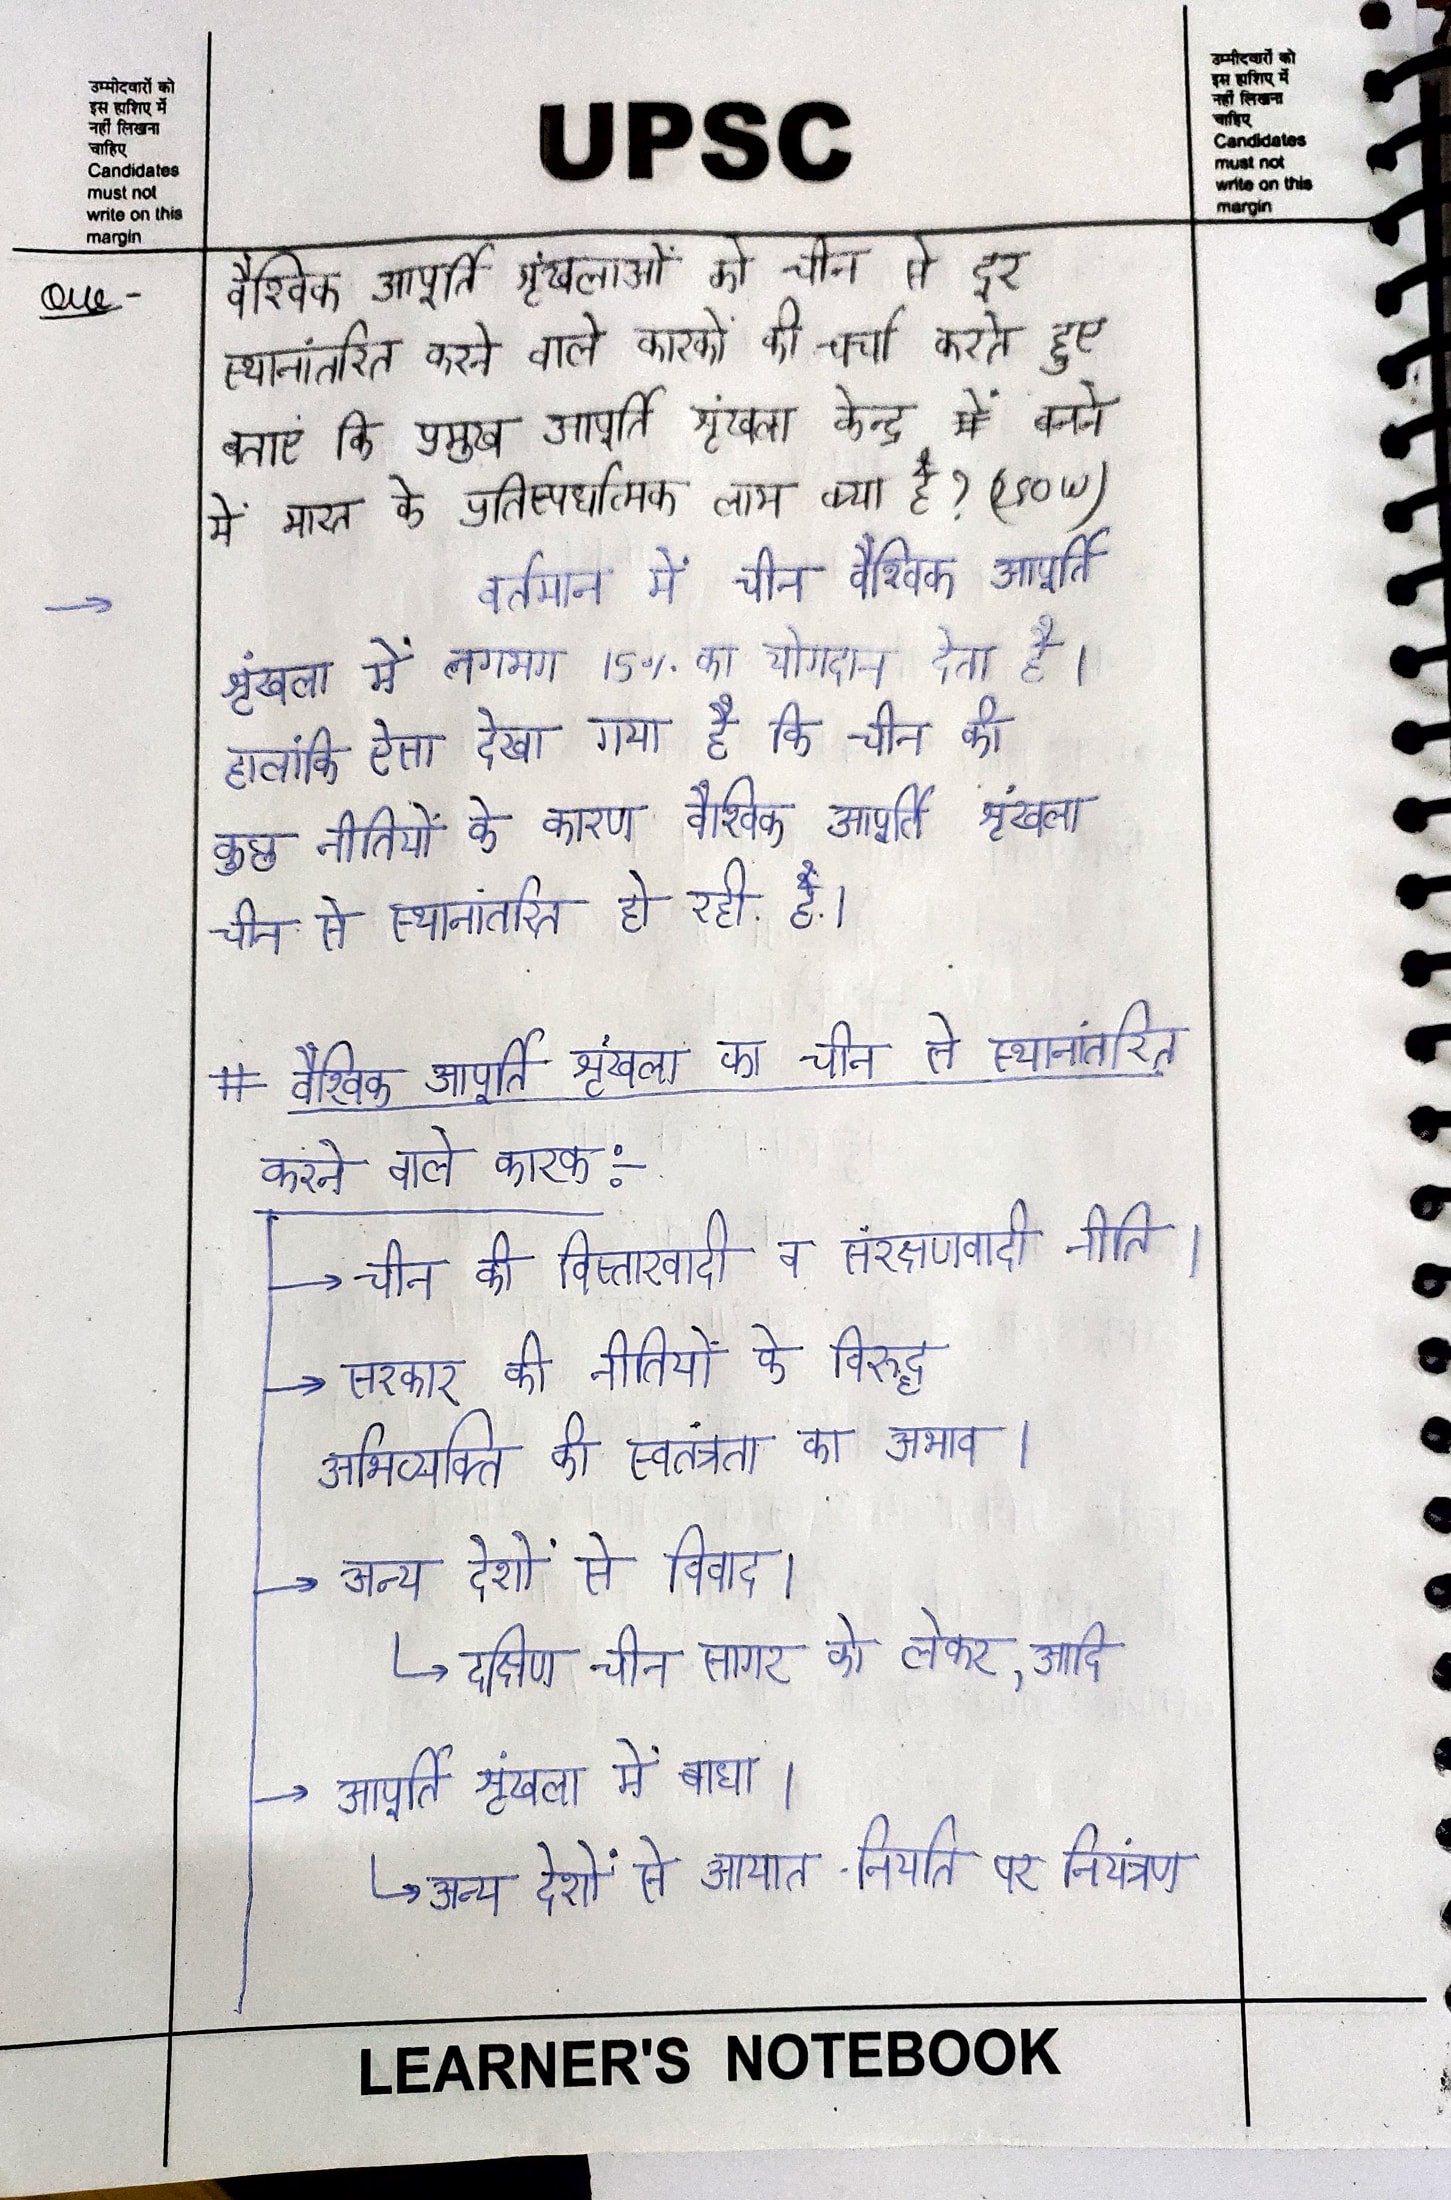 उम्मीदवारों को
इस हाशिए में
नहीं लिखना
चाहिए
Candidates
must not
write on this
margin
UPSC
उम्मीदवारों को
इस हाशिए में
नहीं लिखना
चाहिए
Candidates
must not
write on this
margin
Que - वैश्विक आपूर्ति शृंखलाओं को चीन से दूर
स्थानांतरित करने वाले कारकों की चर्चा करते हुए
बताएं कि प्रमुख आपूर्ति शृंखला केन्द्र में बनने
में भारत के प्रतिस्पर्धात्मक लाभ क्या है? (250 W)
→ वर्तमान में चीन वैश्विक आपूर्ति
शृंखला में लगभग 15% का योगदान देता है।
हालांकि ऐसा देखा गया है कि चीन की
कुछ नीतियों के कारण वैश्विक आपूर्ति शृंखला
चीन से स्थानांतरित हो रही है।
# वैश्विक आपूर्ति शृंखला का चीन से स्थानांतरित
करने वाले कारक :-
→ चीन की विस्तारवादी व संरक्षणवादी नीति।
→ सरकार की नीतियों के विरुद्ध
अभिव्यक्ति की स्वतंत्रता का अभाव।
→ अन्य देशों से विवाद।
↳ दक्षिण चीन सागर को लेकर, आदि
→ आपूर्ति शृंखला में बाधा।
↳ अन्य देशों से आयात-निर्यात पर नियंत्रण
LEARNER'S NOTEBOOK